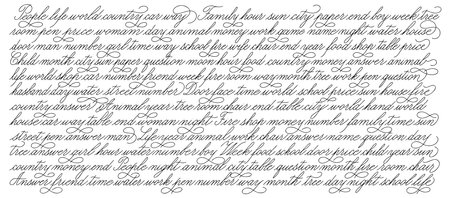 People life world country car way Family hour sun city paper end boy week tree
room pen price woman day animal money work game name night water house
door man number girl time way school fire wife chair end year food shop table price
Child month city sun paper question moon hour food country money answer animal
life world shop car number friend week fire room way month tree work pen question
husband day water street number Door face time world school price sun house fire
country answer Animal year tree room chair end table city world hand world
house car way table end woman night Fire shop money number family time sun
street pen answer man Life year animal work chair answer name question day
tree answer girl hour water number boy Week food school door price child year sun
country money end People night animal city table question month fire room chair
Answer friend time water work pen number way month thing day night school life